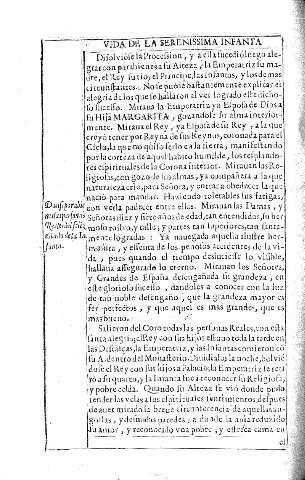 VIDA DE LA SERENISSIMA INFANTA
Disolviose la Procession, y a ella sucedio luego ale-
grar con parabienes a su Alteza, la Emperatriz su ma-
dre, el Rey su tio, el Principe, las Infantas, y los demas
circunstantes. No se puede bastantemente explicar el
alegria de los que se hallaron al ver logrado este dicho-
so sucesso. Miraua la Emperatriz ya Esposa de Dios a
su Hija MARGARITA, gozandose su alma interior-
mente. Miraua el Rey, ya Esposa de su Rey, a la que
creyò tener por Reyna de sus Reynos, coronada para el
Cielo, la que no quiso serlo en la tierra, manifestando
por la corteza de aquel habito humilde, los resplando-
res espirituales de la Corona interior. Mirauan las Re-
ligiosas, con gozo de sus almas, ya compañera a la que
naturaleza criò, para Señora, y entrar a obedecer la que
naciò para mandar. Haziendo tolerables sus fatigas,
con verla padecer entre ellas. Mirauan las Damas, y
Señoras diez y siete años de edad, tan entendido, su her-
moso rostro, y talle; y partes tan superiores, tan
mente logradas: Ya negada aquella ilustre her-
mosura, y essenta de los penosos accidentes de la vi-
da, pues quando el tiempo desluciesse lo visible,
hallaua assegurado lo eterno. Mirauan los Señores,
y Grandes de España desengañada la grandeza, en
este glorioso sucesso, dandoles a conocer con la luz
de tan noble desengaño, que la grandeza mayor es
ser perfectos, y que aquel es mas grande, que es
mas bueno.
Salieron del Coro todas las personas Reales, con esta
santa alegria; el Rey con sus hijos estuuo toda la tarde en
las Descalças, la Emperatriz, y las Infantas comieron có
su A. dentro del Monasterio. Diuidiolas la noche, bolvié
dose el Rey con sus hijos a Palacio, la Emperatriz se retí
rò a su quarto, y la Infanta fue a reconocer su Religiosa,
y pobre celda. Quando su Alteza se viò donde pudo
tender las velas a los espirituales sentimientos, despues
de auer mirado la breue circunferencia de aquellas an-
gostas, y desnudas paredes, a donde la auia reduzido
su amor, y reconocido una pobre, y estrecha cama en
el